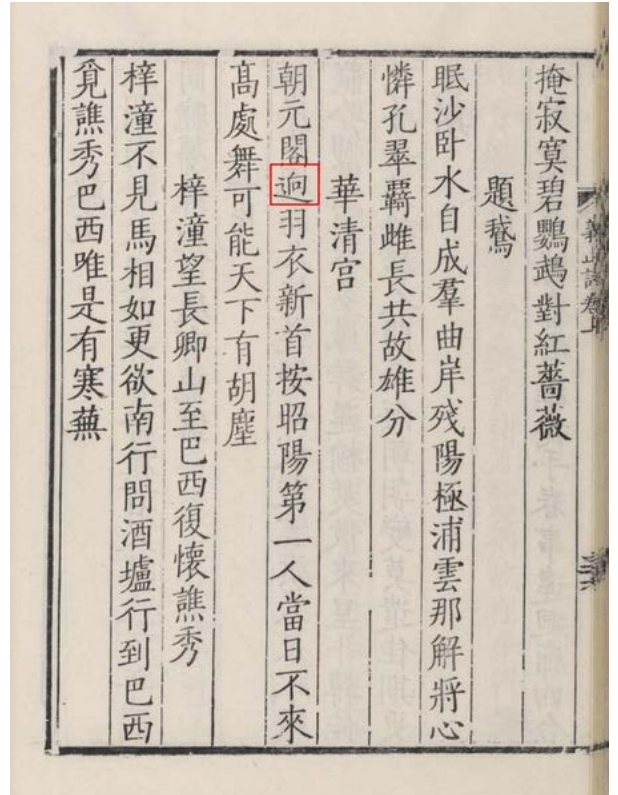 義山詩卷上
掩寂寞碧鸚鵡對紅薔薇
題鵝
眠沙卧水自成羣曲岸残陽極浦雲那解將心
憐孔翠羈雌長共故雄分
華清宫
朝元閣逈羽衣新首按昭陽第一人當日不來
高處舞可能天下有胡塵
梓潼望長卿山至巴西復懷譙秀
梓潼不見馬相如更欲南行問酒壚行到巴西
覓譙秀巴西唯是有寒蕪